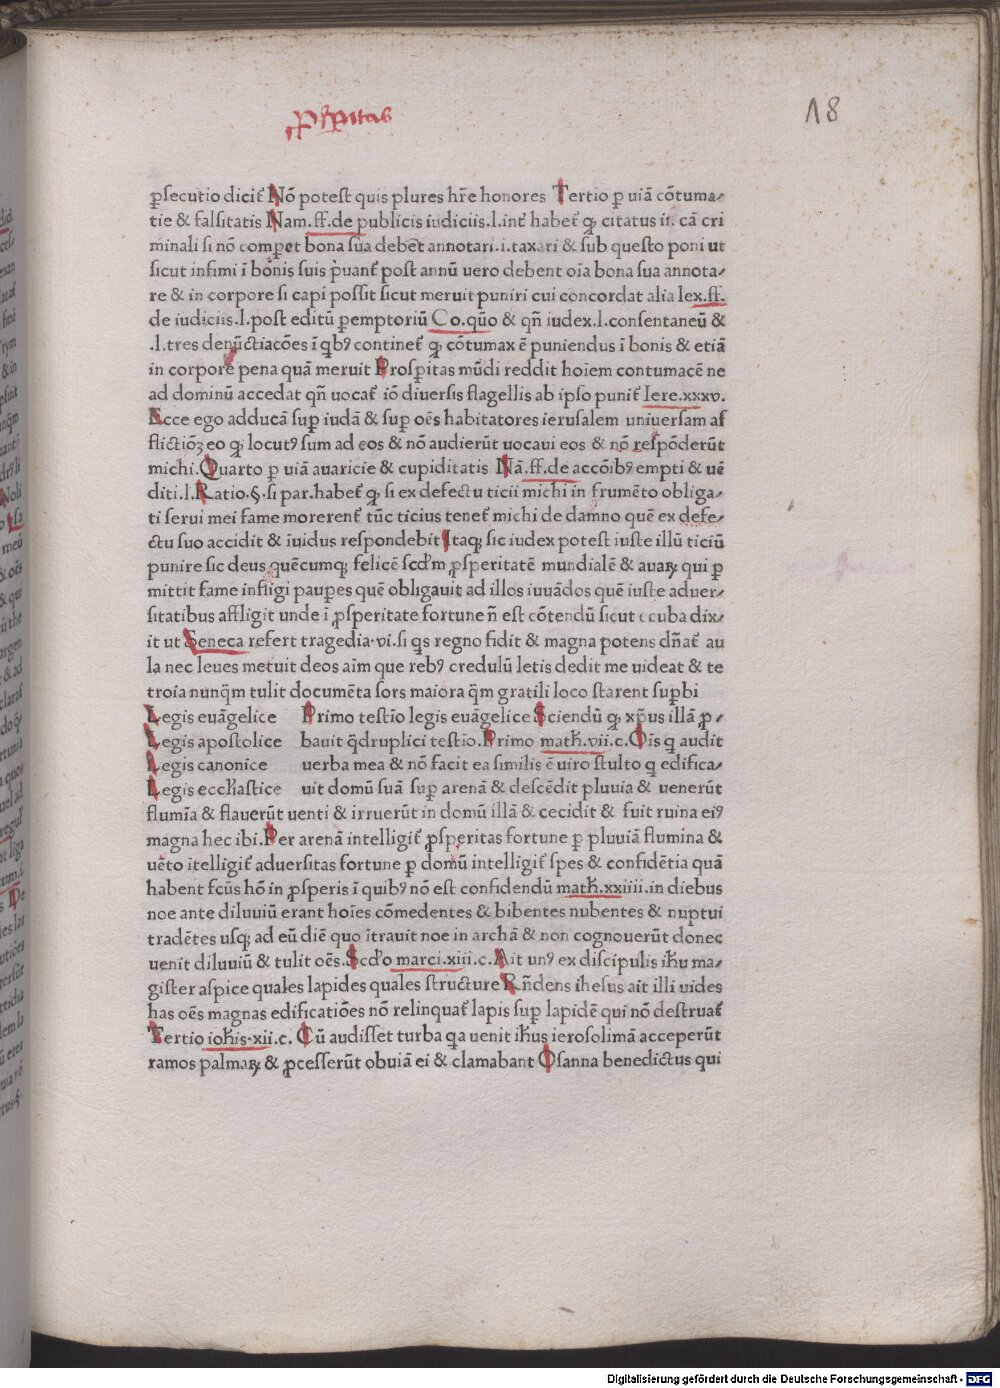 ꝓſꝑitas
18
ꝑſecutio dicit᷑ Nō poteſt quis plures hr̄e honores Tertio ꝑ uiā cōtuma⸗
tie & falſitatis Nam.ff.de publicis iudiciis.l.int᷑ habet᷑ ꝙ citatus in cā cri
minali ſi nō comꝑet bona ſua debēt annotari.i.taxari & ſub queſto poni ut
ſicut infimi ī bonis ſuis p̄uant᷑ poſt annū uero debent oīa bona ſua annota⸗
re & in corpore ſi capi poſſit ſicut meruit puniri cui concordat alia lex.ff.
de iudiciis.l.poſt editū ꝑemptoriū Co.qūo & qn̄ iudex.l.conſentaneū &
.l.tres denūctiacōes ī qbꝰ continet᷑ ꝙ cōtumax ē puniendus ī bonis & etiā
in corpore pena quā meruit Proſꝑitas mūdi reddit hoīem contumacē ne
ad dominū accedat qn̄ uocat᷑ iō diuerſis flagellis ab ipſo punit᷑ Iere.xxxv.
Ecce ego adducā ſuꝑ iudā & ſuꝑ oēs habitatores ieruſalem uniuerſam aſ
flictiōꝫ eo ꝙ locutꝰ ſum ad eos & nō audierūt uocaui eos & nō reſpōderūt
michi.Quarto ꝑ uiā auaricie & cupiditatis Nā.ff.de accōibꝰ empti & uē
diti.l.Ratio.§.ſi par.habet᷑ ꝙ ſi ex defectu ticii michi in frumēto obliga⸗
ti ſerui mei fame morerent᷑ tūc ticius tenet᷑ michi de damno quē ex defe⸗
ctu ſuo accidit & īuidus reſpondebit Itaqꝫ ſic iudex poteſt iuſte illū ticiū
punire ſic deus quēcumqꝫ felicē ſcd̓m ꝓſperitatē mundialē & auaꝝ qui ꝑ
mittit fame infligi pauꝑes quē obligauit ad illos iuuādos quē iuſte aduer⸗
ſitatibus affligit unde ī ꝓſperitate fortune n̄ eſt cōtendū ſicut ecuba dix⸗
it ut Seneca refert tragedia.vi.ſi qs regno fidit & magna potens dn̄at᷑ au
la nec leues metuit deos aīm que rebꝰ credulū letis dedit me uideat & te
troia nunq̄m tulit documēta ſors maiora q̄m gratili loco ſtarent ſuꝑbi
Legis euāgelice Primo teſtīo legis euāgelice Sciendū ꝙ xp̄us illā ꝓ⸗
Legis apoſtolice bauit q̄druplici teſtīo.Primo math̄.vii.c.Oīs q audit
Legis canonice uerba mea & nō facit ea ſimilis ē uiro ſtulto q edifica⸗
Legis eccl̄iaſtice uit domū ſuā ſuꝑ arenā & deſcēdit pluuia & uenerūt
flumīa & flauerūt uenti & irruerūt in domū illā & cecidit & fuit ruina eiꝰ
magna hec ibi.Per arenā intelligit᷑ ꝓſperitas fortune ꝑ pluuiā flumina &
uēto ītelligit᷑ aduerſitas fortune ꝑ domū intelligit᷑ ſpes & confidētia quā
habent fcūs hō in ꝓſperis ī quibꝰ nō eſt confidendū math̄.xxiiii.in diebus
noe ante diluuiū erant hoīes cōmedentes & bibentes nubentes & nuptui
tradētes uſqꝫ ad eū diē quo ītrauit noe in archā & non cognouerūt donec
uenit diluuiū & tulit oēs.Scd̓o marci.xiii.c.Ait unꝰ ex diſcipulis ih̄u ma⸗
giſter aſpice quales lapides quales ſtructure Rn̄dens iheſus ait illi uides
has oēs magnas edificatiōes nō relinquat᷑ lapis ſuꝑ lapidē qui nō deſtruat᷑
Tertio ioh̄is.xii.c. Cū audiſſet turba qa uenit ih̄us ieroſolimā acceperūt
ramos palmaꝝ & ꝓceſſerūt obuiā ei & clamabant Oſanna benedictus qui
Digitalisierung gefördert durch die Deutsche Forschungsgemeinschaft · DFG